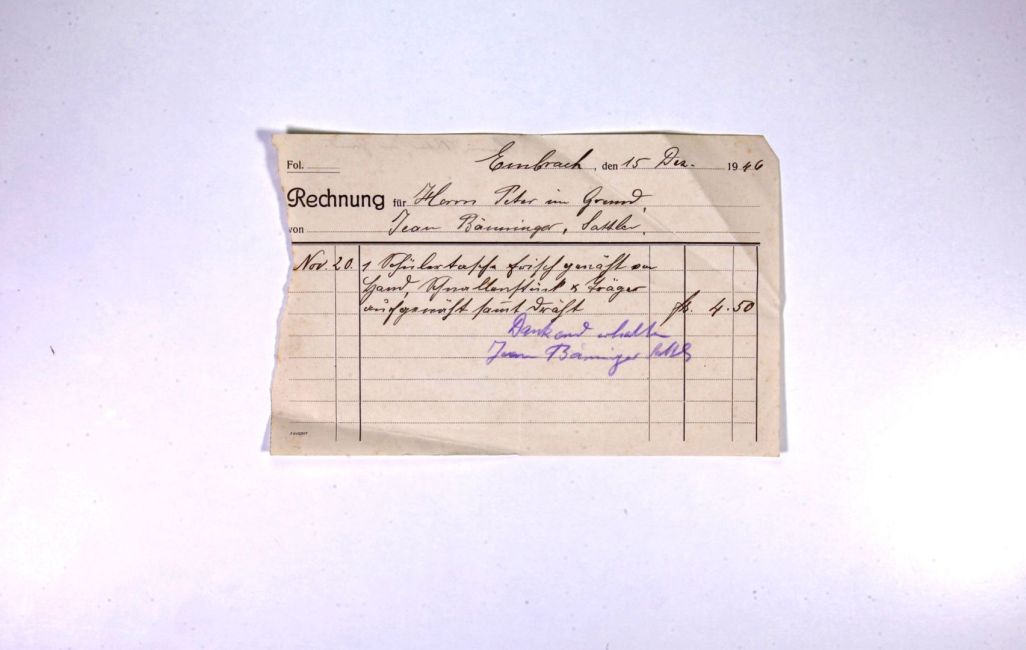 Fol.
Embrach, den 15 Dez. 1946
Rechnung für Herrn Peter im Grund,
von Jean Bänninger, Sattler.
Nov. 20. 1 Schülertasche frisch genäht von
Hand, Schnallenstück & Träger
aufgenäht samt Draht fr. 4.50
Dankend erhalten
Jean Bänninger